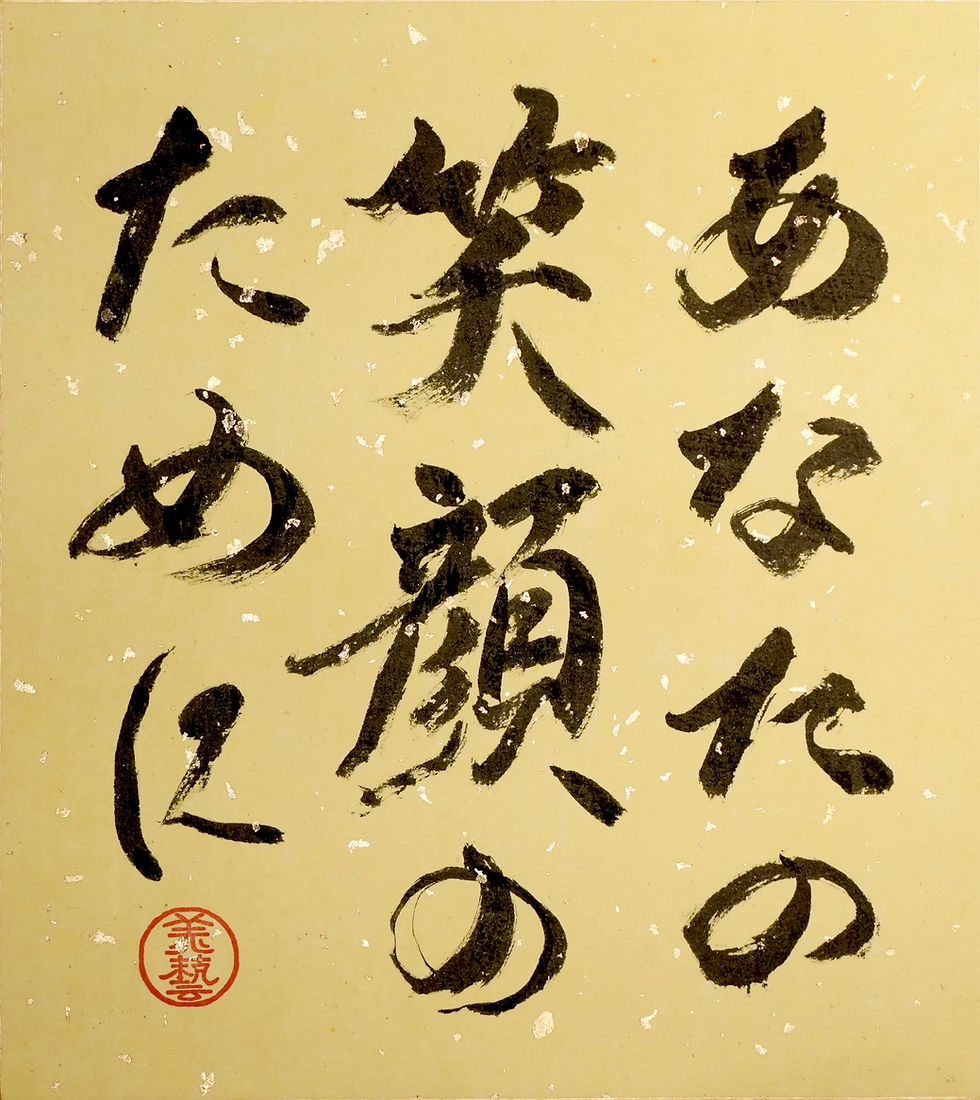 あなたの
笑顔の
ために
美藝